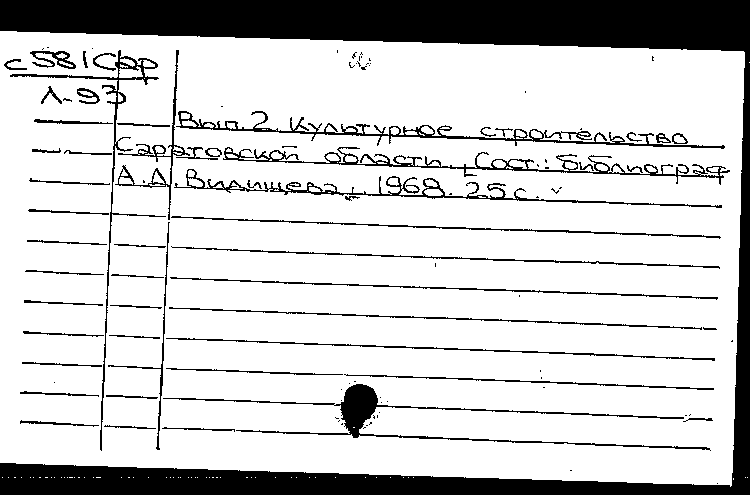 с581Сар
Л-93
Вып.2. Культурное строительство
Саратовской области. [Сост.: библиограф
А.Д. Видищева]. 1968. 25 с.